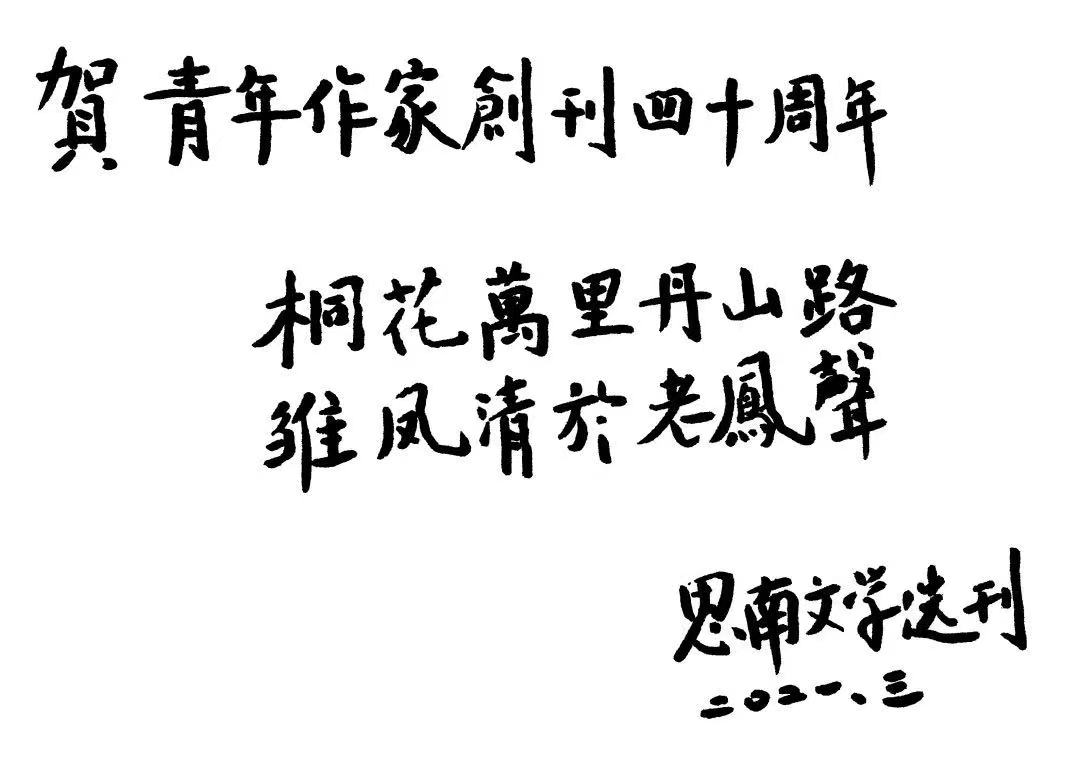 賀青年作家創刊四十周年
桐花萬里丹山路
雏凤清於老鳳聲
思南文学选刊
二〇二一、三